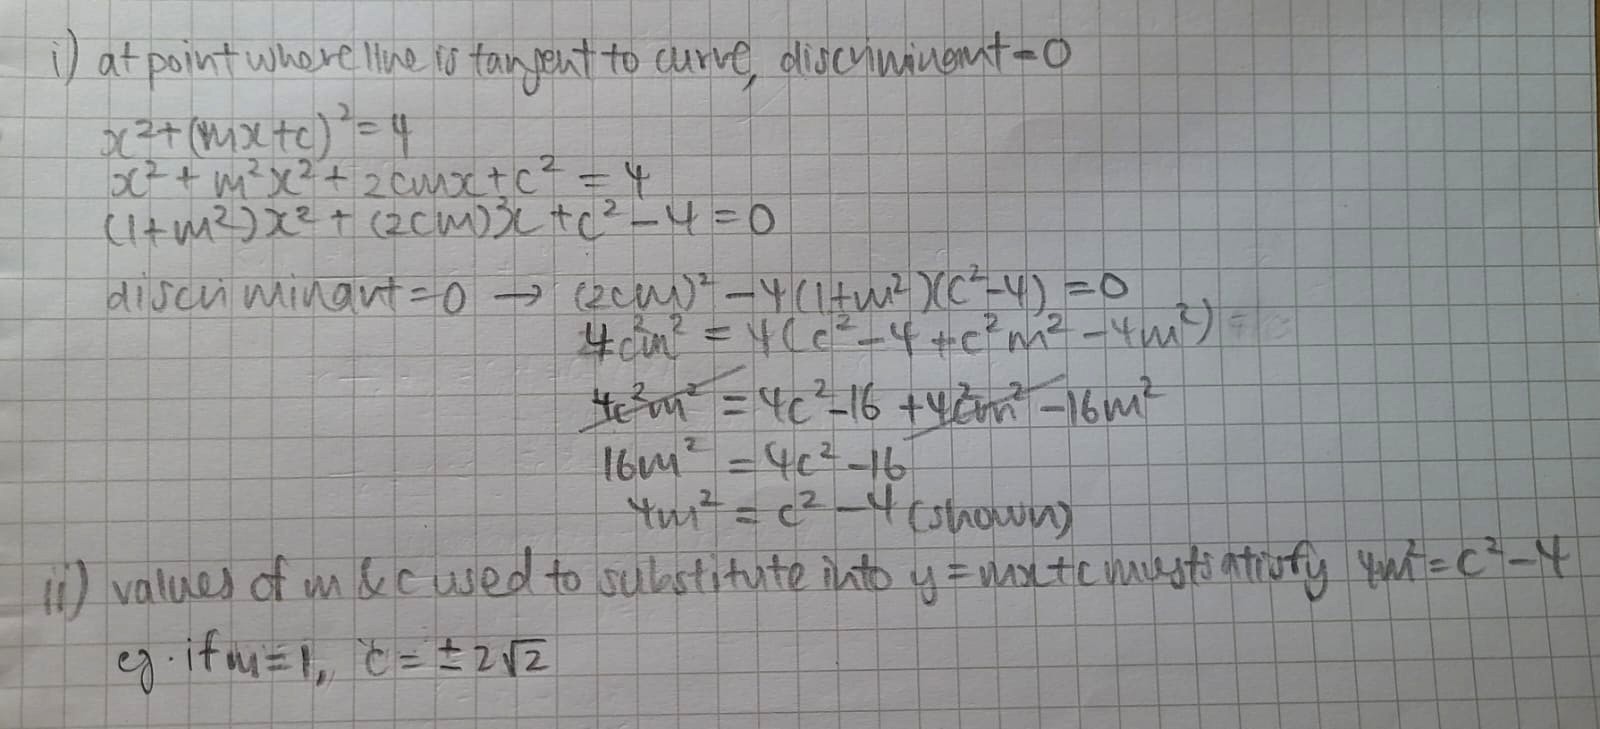 i) at point where line is tangent to curve, discriminant = 0
x² + (mx+c)² = 4
x² + m²x² + 2cmx + c² = 4
(1+m²)x² + (2cm)x + c² - 4 = 0
discriminant = 0 → (2cm)² - 4(1+m²)(c²-4) = 0
4c²m² = 4(c² - 4 + c²m² - 4m²)
4c²m² = 4c² - 16 + 4c²m² - 16m²
16m² = 4c² - 16
4m² = c² - 4 (shown)
ii) values of m & c used to substitute into y = mx + c must satisfy 4m² = c² - 4
eg. if m = 1, c = ± 2√2